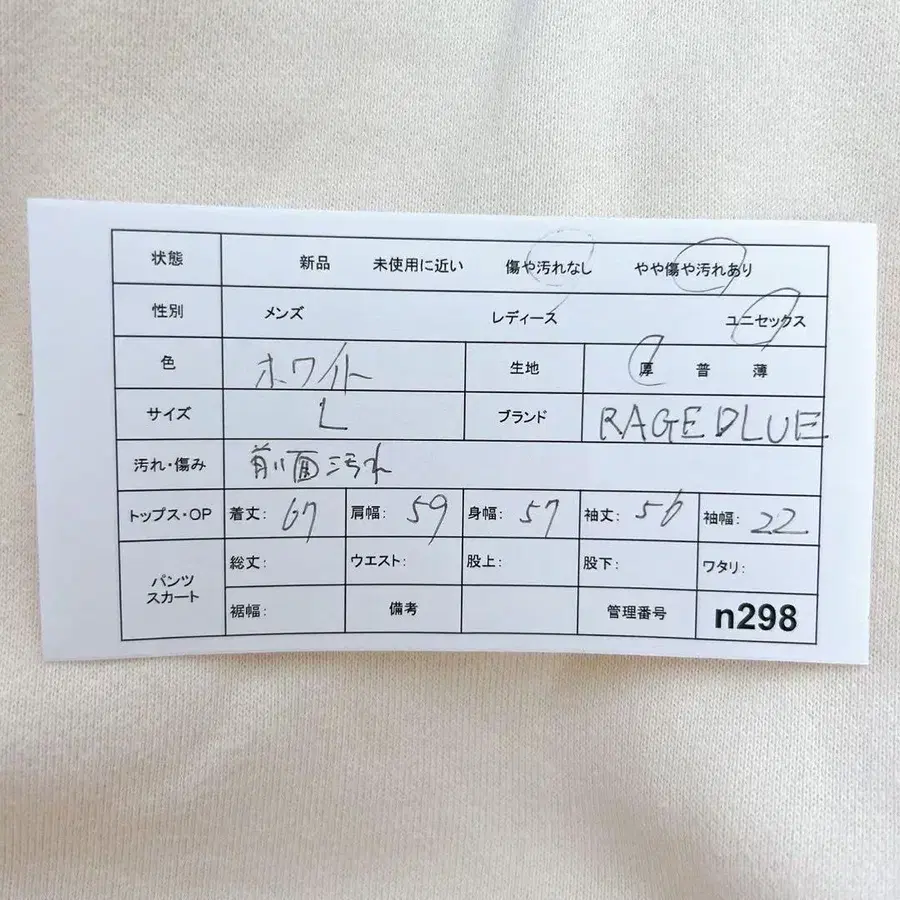 状態 新品 未使用に近い 傷や汚れなし やや傷や汚れあり
性別 メンズ レディース ユニセックス
色 ホワイト 生地 厚 普 薄
サイズ L ブランド RAGEDLUE
汚れ・傷み 前面汚れ
トップス・OP 着丈: 67 肩幅: 59 身幅: 57 袖丈: 56 袖幅: 22
パンツ
スカート
総丈: ウエスト: 股上: 股下: ワタリ:
裾幅: 備考 管理番号 n298